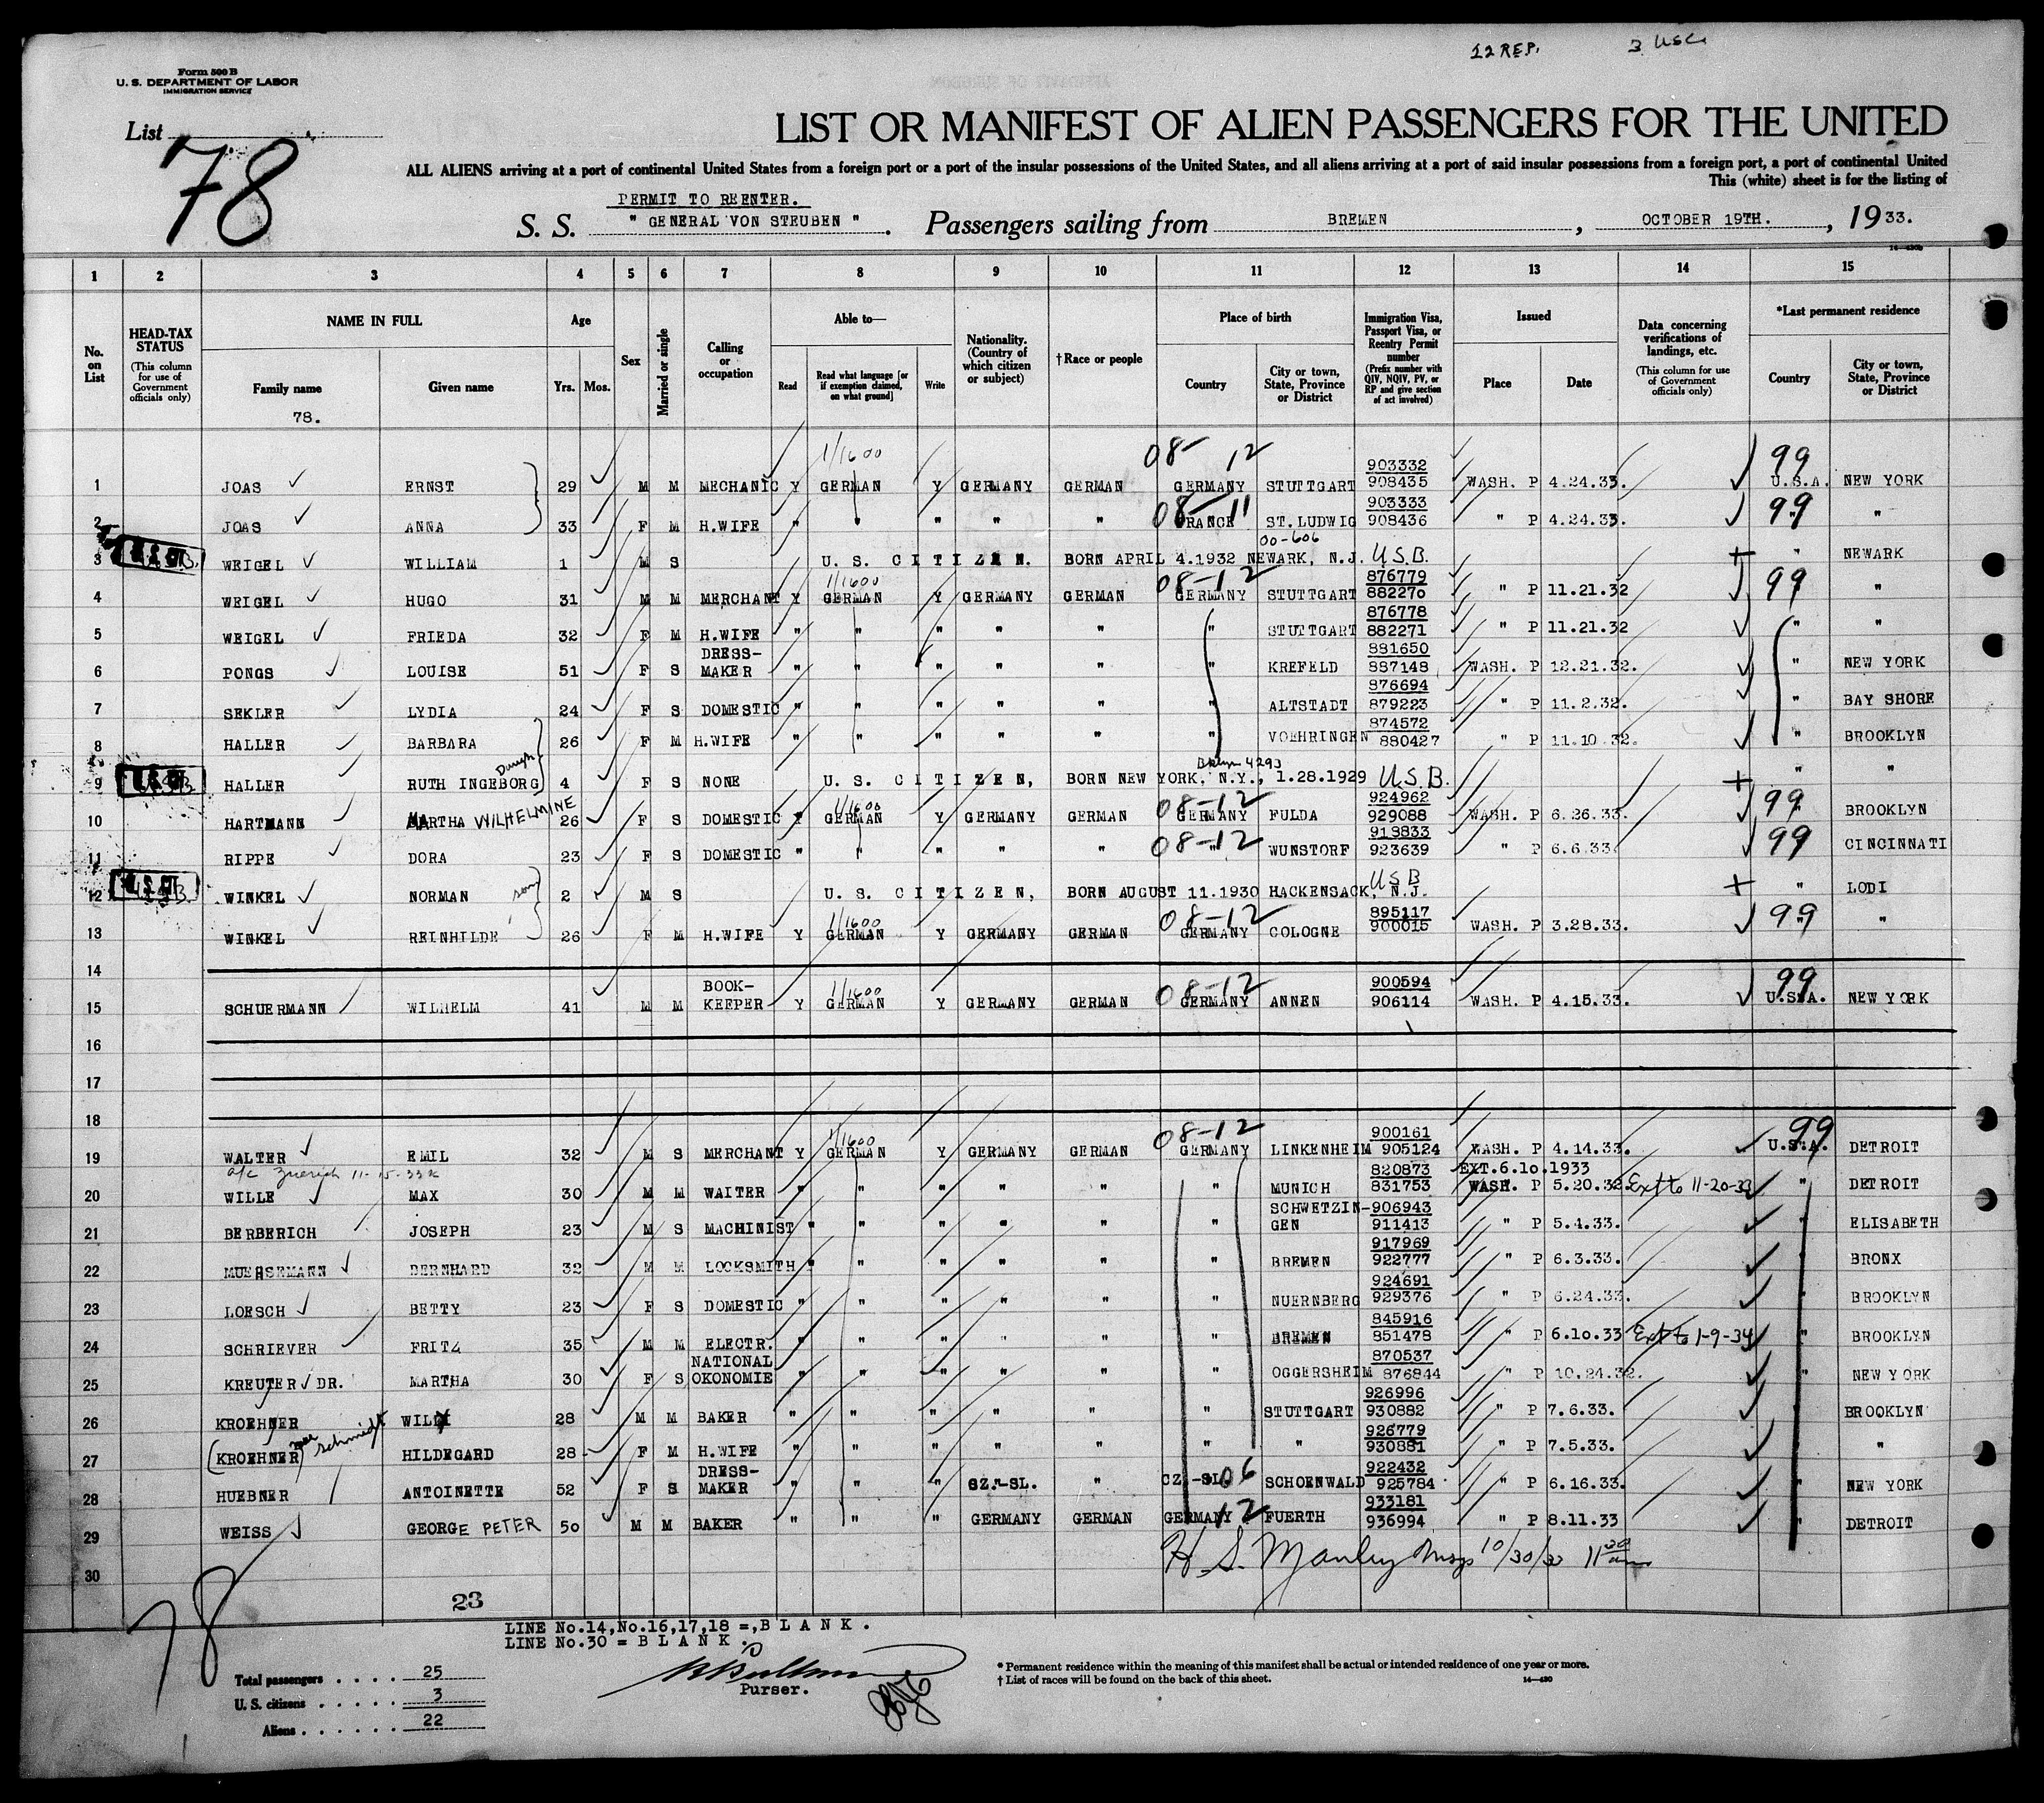 12 REP. 3 USC
Form 500 B
U. S. DEPARTMENT OF LABOR
IMMIGRATION SERVICE
List 78
LIST OR MANIFEST OF ALIEN PASSENGERS FOR THE UNITED
ALL ALIENS arriving at a port of continental United States from a foreign port or a port of the insular possessions of the United States, and all aliens arriving at a port of said insular possessions from a foreign port, a port of continental United
This (white) sheet is for the listing of
PERMIT TO REENTER.
S. S. " GENERAL VON STEUBEN ". Passengers sailing from BREMEN, OCTOBER 19TH., 1933.
1 2 3 4 5 6 7 8 9 10 11 12 13 14 15
No. on List
HEAD-TAX STATUS (This column for use of Government officials only)
NAME IN FULL Family name Given name
78.
Age Yrs. Mos.
Sex
Married or single
Calling or occupation
Able to— Read Read what language [or if exemption claimed, on what ground] Write
Nationality. (Country of which citizen or subject)
† Race or people
Place of birth Country City or town, State, Province or District
Immigration Visa, Passport Visa, or Reentry Permit number (Prefix number with QIV, NQIV, PV, or RP and give section of act involved)
Issued Place Date
Data concerning verifications of landings, etc. (This column for use of Government officials only)
*Last permanent residence Country City or town, State, Province or District
1/1600 08- 12 903332 99
1 JOAS ERNST 29 M M MECHANIC Y GERMAN Y GERMANY GERMAN GERMANY STUTTGART 908435 WASH. P 4.24.33. U.S.A. NEW YORK
08-11 903333 99
2 JOAS ANNA 33 F M H.WIFE " " " " " FRANCE ST.LUDWIG 908436 " P 4.24.33. " "
00-606
3 WEIGEL WILLIAM 1 M S U. S. CITIZEN. BORN APRIL 4.1932 NEWARK, N.J. U.S.B. " NEWARK
1/1600 08-12 876779 99
4 WEIGEL HUGO 31 M M MERCHANT Y GERMAN Y GERMANY GERMAN GERMANY STUTTGART 882270 " P 11.21.32 "
876778
5 WEIGEL FRIEDA 32 F M H.WIFE " " " " " " STUTTGART 882271 " P 11.21.32 " "
DRESS- 881650
6 PONGS LOUISE 51 F S MAKER " " " " " " KREFELD 887148 WASH. P 12.21.32. " NEW YORK
876694
7 SEKLER LYDIA 24 F S DOMESTIC " " " " " " ALTSTADT 879223 " P 11.2.32. " BAY SHORE
874572
8 HALLER BARBARA 26 F M H.WIFE " " " " " " VOEHRINGEN 880427 " P 11.10.32. " BROOKLYN
Daugh Bklyn 4293
9 HALLER RUTH INGEBORG 4 F S NONE U. S. CITIZEN, BORN NEW YORK, N.Y., 1.28.1929 U.S.B. " "
1/1600 08-12 924962 99
10 HARTMANN MARTHA WILHELMINE 26 F S DOMESTIC Y GERMAN Y GERMANY GERMAN GERMANY FULDA 929088 WASH. P 6.26.33. BROOKLYN
08-12 918833 99
11 RIPPE DORA 23 F S DOMESTIC " " " " " " WUNSTORF 923639 " P 6.6.33. CINCINNATI
USB
12 WINKEL NORMAN son 2 M S U. S. CITIZEN, BORN AUGUST 11.1930 HACKENSACK, N.J. " LODI
1/1600 08-12 895117 99
13 WINKEL REINHILDE 26 F M H.WIFE Y GERMAN Y GERMANY GERMAN GERMANY COLOGNE 900015 WASH. P 3.28.33. "
14
BOOK- 1/1600 08-12 900594 99
15 SCHUERMANN WILHELM 41 M M KEEPER Y GERMAN Y GERMANY GERMAN GERMANY ANNEN 906114 WASH. P 4.15.33. U.S.A. NEW YORK
16
17
18
1/1600 08-12 900161 99
19 WALTER EMIL 32 M S MERCHANT Y GERMAN Y GERMANY GERMAN GERMANY LINKENHEIM 905124 WASH. P 4.14.33. U.S.A. DETROIT
a/c Zuerich 11-15-33 820873 EXT.6.10.1933
20 WILLE MAX 30 M M WAITER " " " " " " MUNICH 831753 WASH. P 5.20.32. Ext to 11-20-33 DETROIT
SCHWETZIN- 906943
21 BERBERICH JOSEPH 23 M S MACHINIST " " " " " " GEN 911413 " P 5.4.33. " ELISABETH
917969
22 MUERSEMANN BERNHARD 32 M M LOCKSMITH " " " " " " BREMEN 922777 " P 6.3.33. " BRONX
924691
23 LOESCH BETTY 23 F S DOMESTIC " " " " " " NUERNBERG 929376 " P 6.24.33. " BROOKLYN
845916
24 SCHRIEVER FRITZ 35 M M ELECTR. " " " " " " BREMEN 851478 " P 6.10.33 Ext to 1-9-34 " BROOKLYN
NATIONAL 870537
25 KREUTER DR. MARTHA 30 F S OKONOMIE " " " " " " OGGERSHEIM 876844 " P 10.24.32. " NEW YORK
926996
26 KROEHNER WILLY 28 M M BAKER " " " " " " STUTTGART 930882 " P 7.6.33. " BROOKLYN
nee Schmidt 926779
27 (KROEHNER) HILDEGARD 28 F M H.WIFE " " " " " " " 930881 " P 7.5.33. " "
DRESS- 922432
28 HUEBNER ANTOINETTE 52 F S MAKER " " " CZ.-SL. " CZ.-SL. 06 SCHOENWALD 925784 " P 6.16.33. " NEW YORK
933181
29 WEISS GEORGE PETER 50 M M BAKER " " " GERMANY GERMAN GERMANY 12 FUERTH 936994 " P 8.11.33 " DETROIT
H. S. Manley Insp 10/30/33 11 00 am
30
23
78
LINE No.14,No.16,17,18 =,B L A N K .
LINE No.30 = B L A N K .
Purser.
Total passengers . . . . 25
U. S. citizens . . . . . 3
Aliens . . . . . . 22
* Permanent residence within the meaning of this manifest shall be actual or intended residence of one year or more.
† List of races will be found on the back of this sheet.
14—430